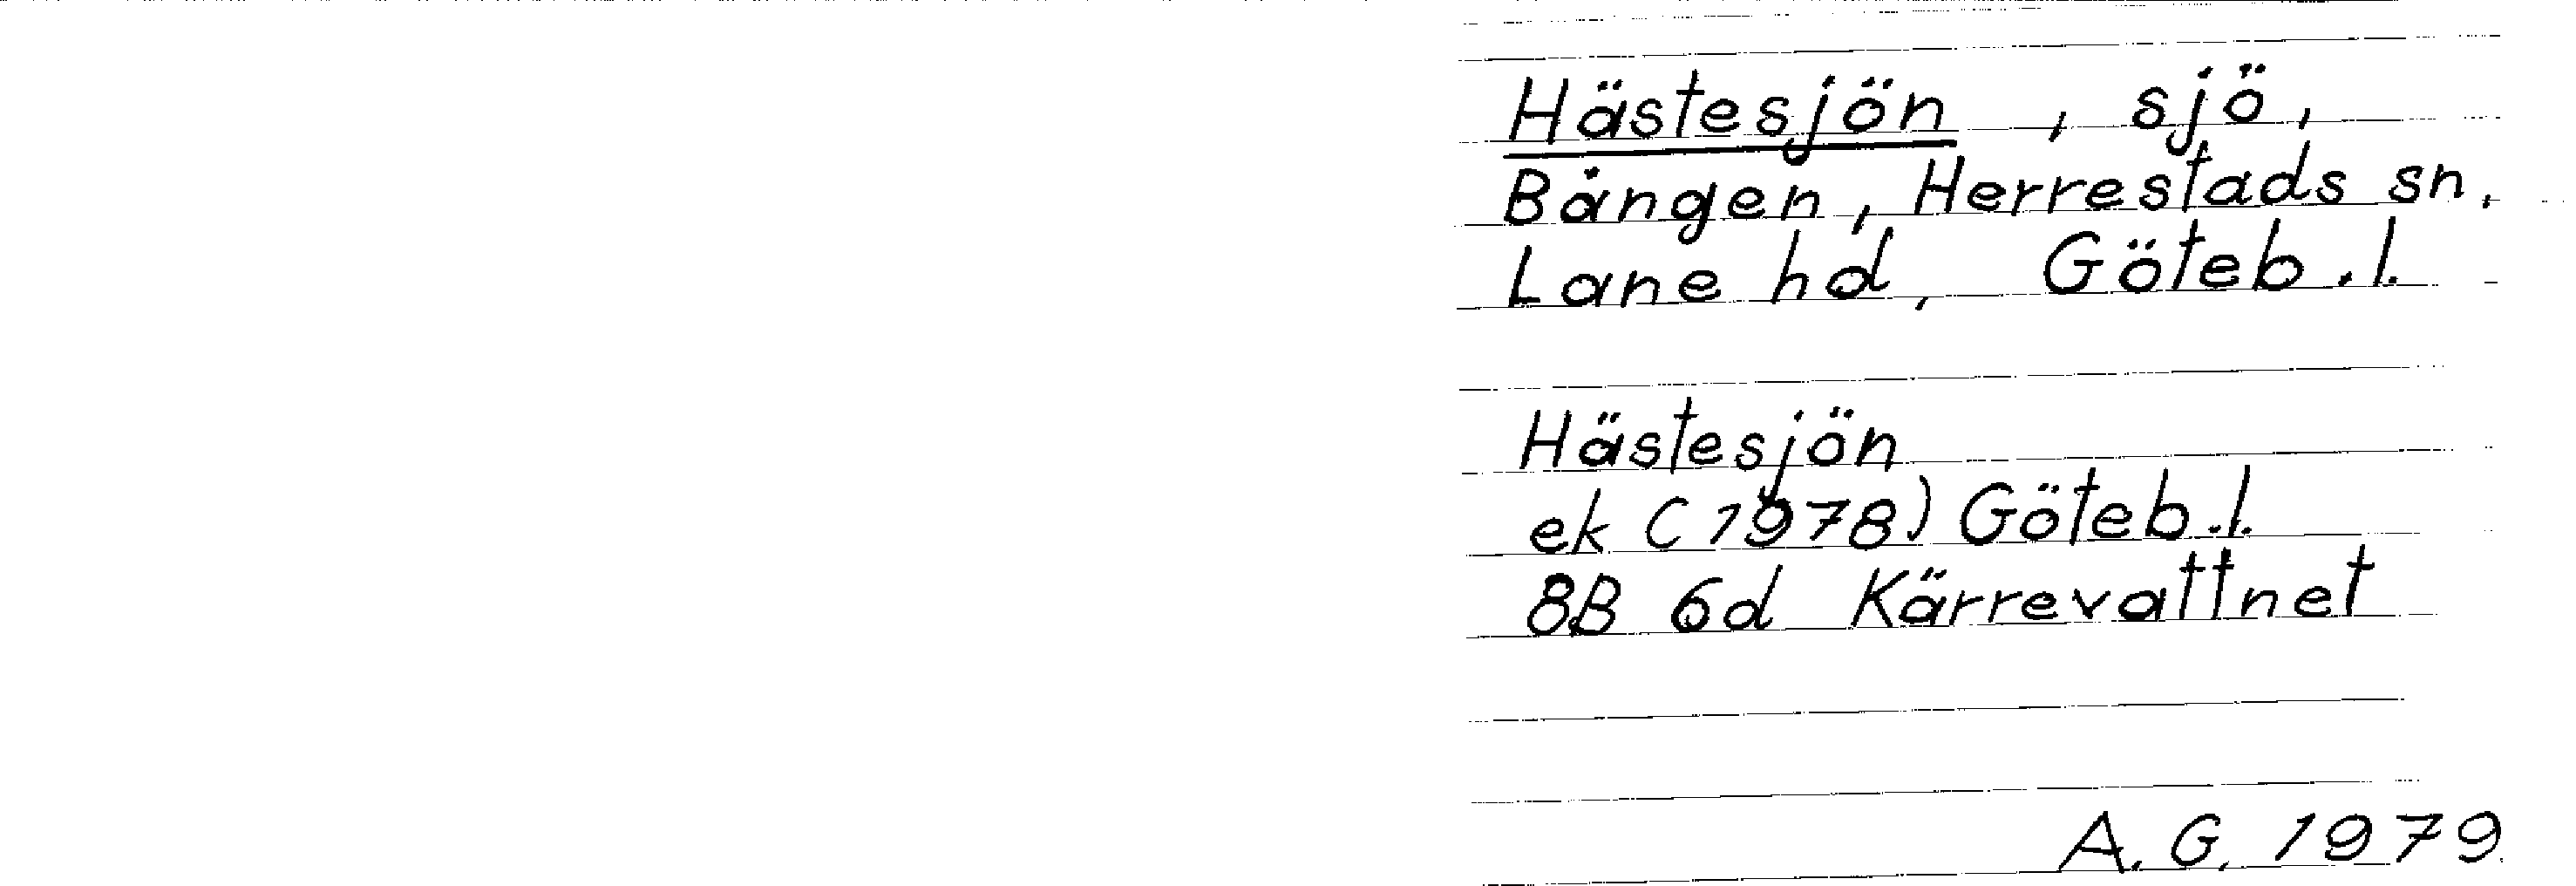 Hästesjön , sjö,
Bången, Herrestads sn,
Lane hd, Göteb.l.
Hästesjön
ek (1978) Göteb.l.
8B 6d Kärrevattnet
A.G. 1979.